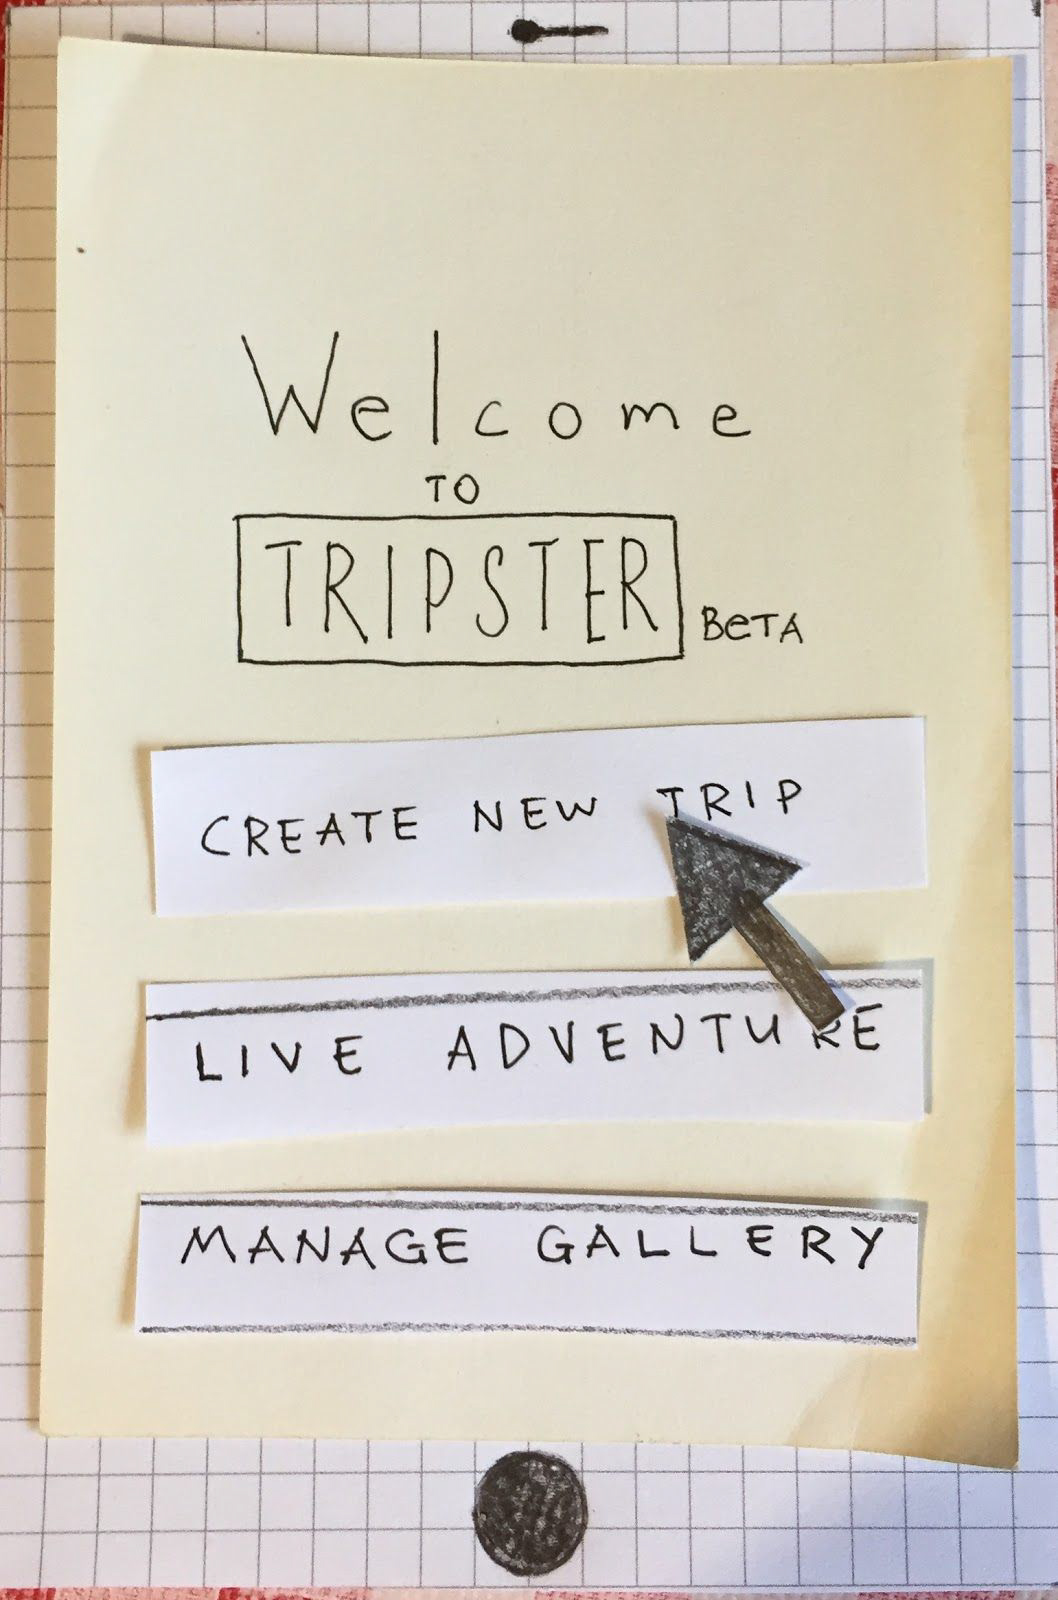 Welcome
TO
TRIPSTER BeTA
CREATE NEW TRIP
LIVE ADVENTURE
MANAGE GALLERY